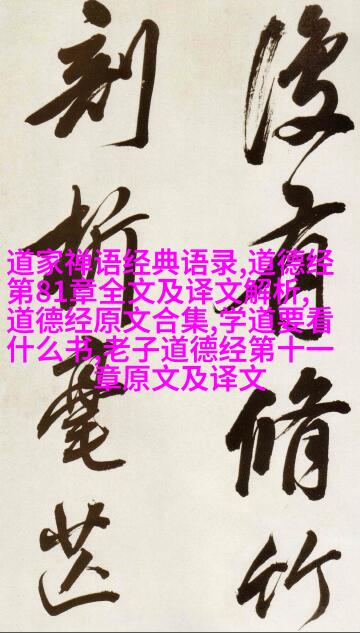 有脩竹
析毫
道家禅语经典语录,道德经
第81章全文及译文解析,
道德经原文合集,学道要看
什么书,老子道德经第十一
章原文及译文